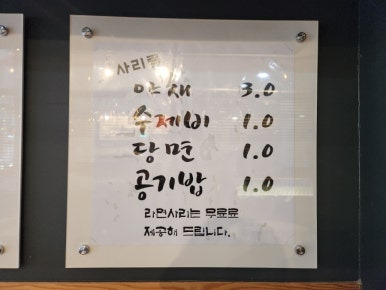 사리류
야채 3.0
수제비 1.0
당면 1.0
공기밥 1.0
라면사리는 무료로
제공해 드립니다.